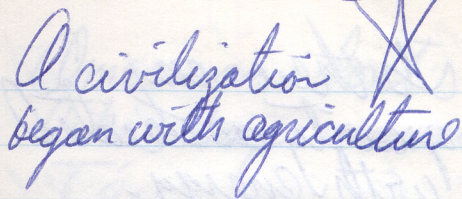 A civilization
began with agriculture